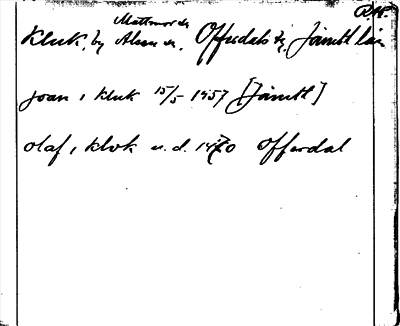 Kluk, by Alsen s. Offerdals tg. Jämtl län
Joan i kluk 15/5 1457 [Jämtl]
Olaf i klok u. d. 1470 Offerdal